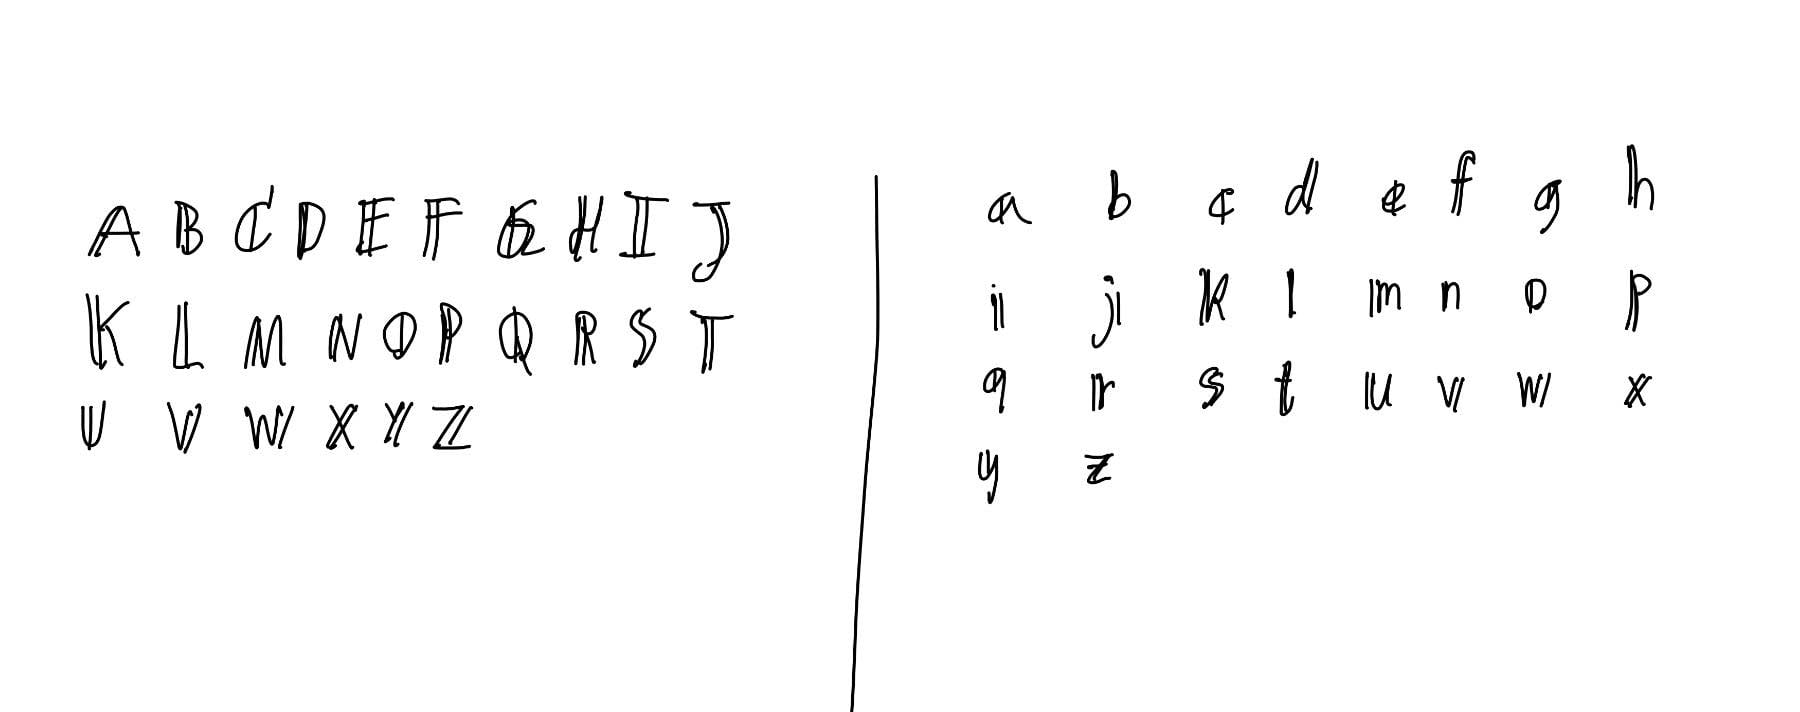 A B C D E F G H I J
K L M N O P Q R S T
U V W X Y Z
a b c d e f g h
i j k l m n o p
q r s t u v w x
y z